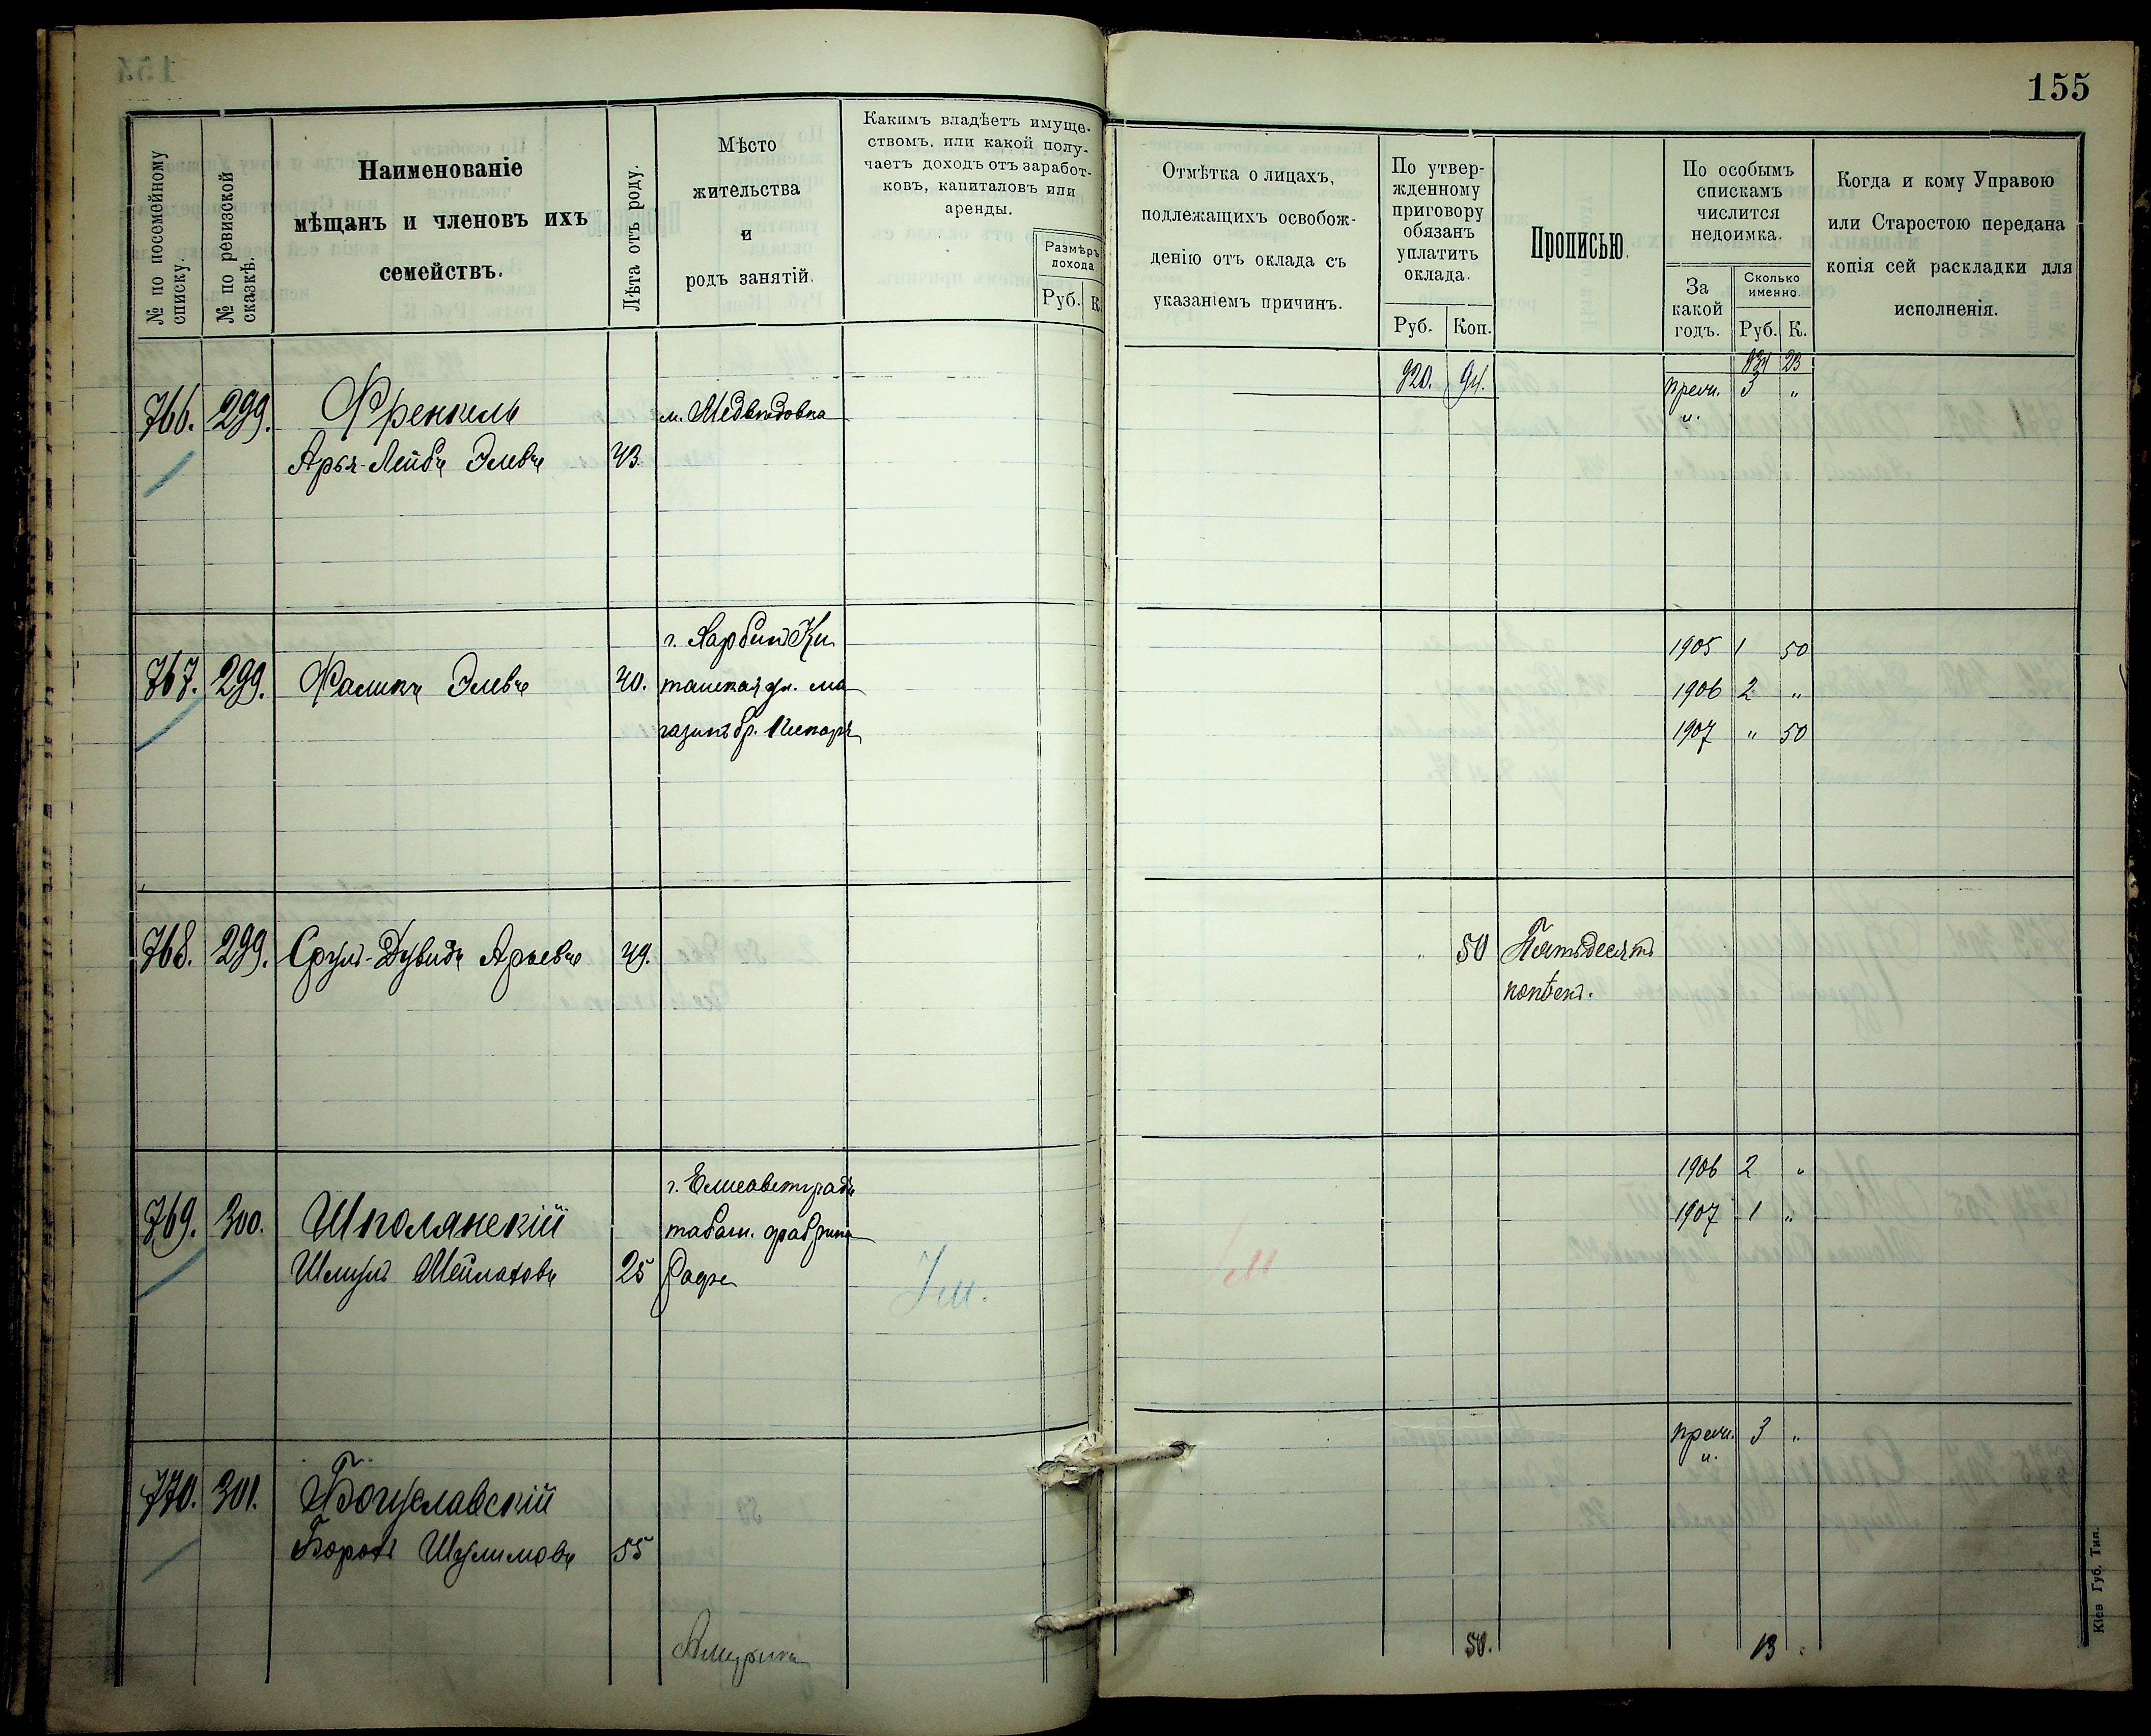 155
№ по посемейному списку.
№ по ревизской сказкѣ.
Наименованіе
мѣщанъ и членовъ ихъ
семействъ.
Лѣта отъ роду.
Мѣсто
жительства
и
родъ занятій.
Какимъ владѣетъ имуще-
ствомъ, или какой полу-
чаетъ доходъ отъ заработ-
ковъ, капиталовъ или
аренды.
Размѣръ
дохода
Руб. К.
Отмѣтка о лицахъ,
подлежащихъ освобож-
денію отъ оклада съ
указаніемъ причинъ.
По утвер-
жденному
приговору
обязанъ
уплатить
оклада.
Руб. Коп.
Прописью.
По особымъ
спискамъ
числится
недоимка.
За
какой
годъ.
Сколько
именно.
Руб. К.
Когда и кому Управою
или Старостою передана
копія сей раскладки для
исполненія.
920. 94. 834 23
766. 299. Френкель м. Медведовка прем. 3 "
и.
Арья-Лейбъ Элевъ 43.
г. Харбинъ Ки 1905 1 50
767. 299. Фаликъ Элевъ 40. тайская ул. ма 1906 2 "
газинъ бр. 1907 " 50
768. 299. Сруль-Дувидъ Арьевъ 49. " 50 Пятьдесятъ
копѣекъ.
г. Елисаветградъ 1906 2 "
769. 300. Шполянскій табач. фабрика 1907 1 "
Шмуль Мейлаховъ 25
770. 301. Богуславскій прем. 3 "
и.
Борохъ Шулимовъ 55
50. 13
Кіев Губ. Тип.